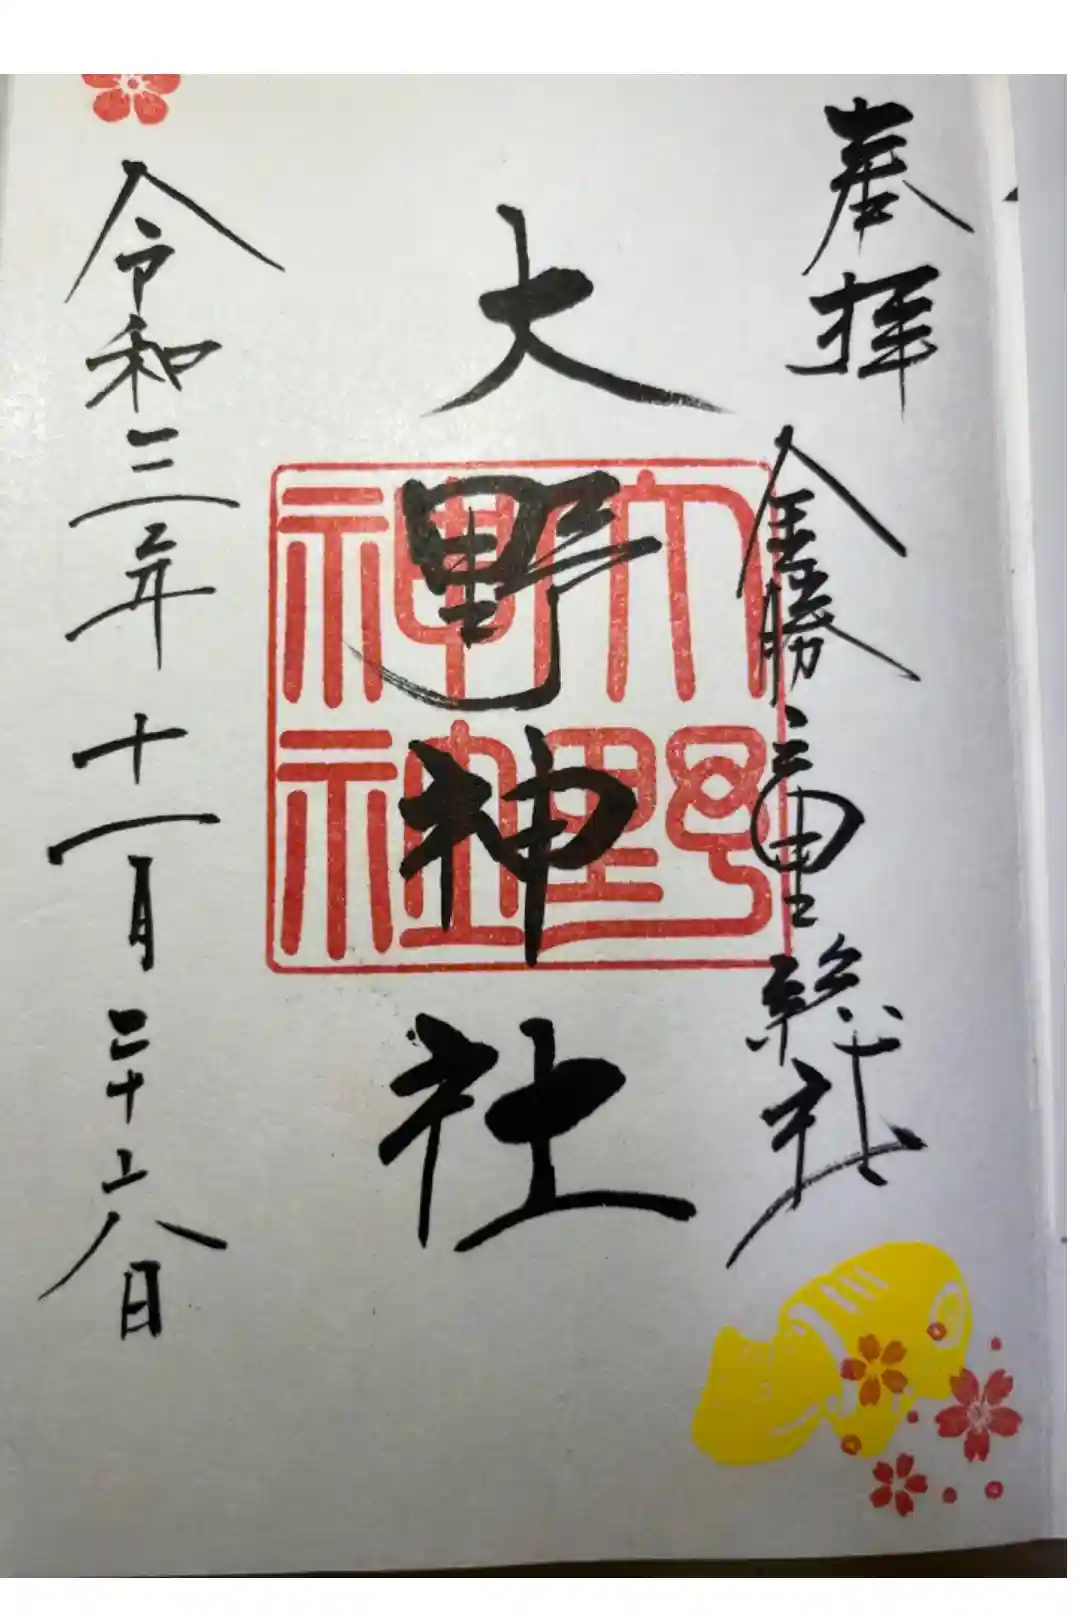 奉拝 金勝之里總社
大野神社
令和三年十一月二十六日
大野
神社